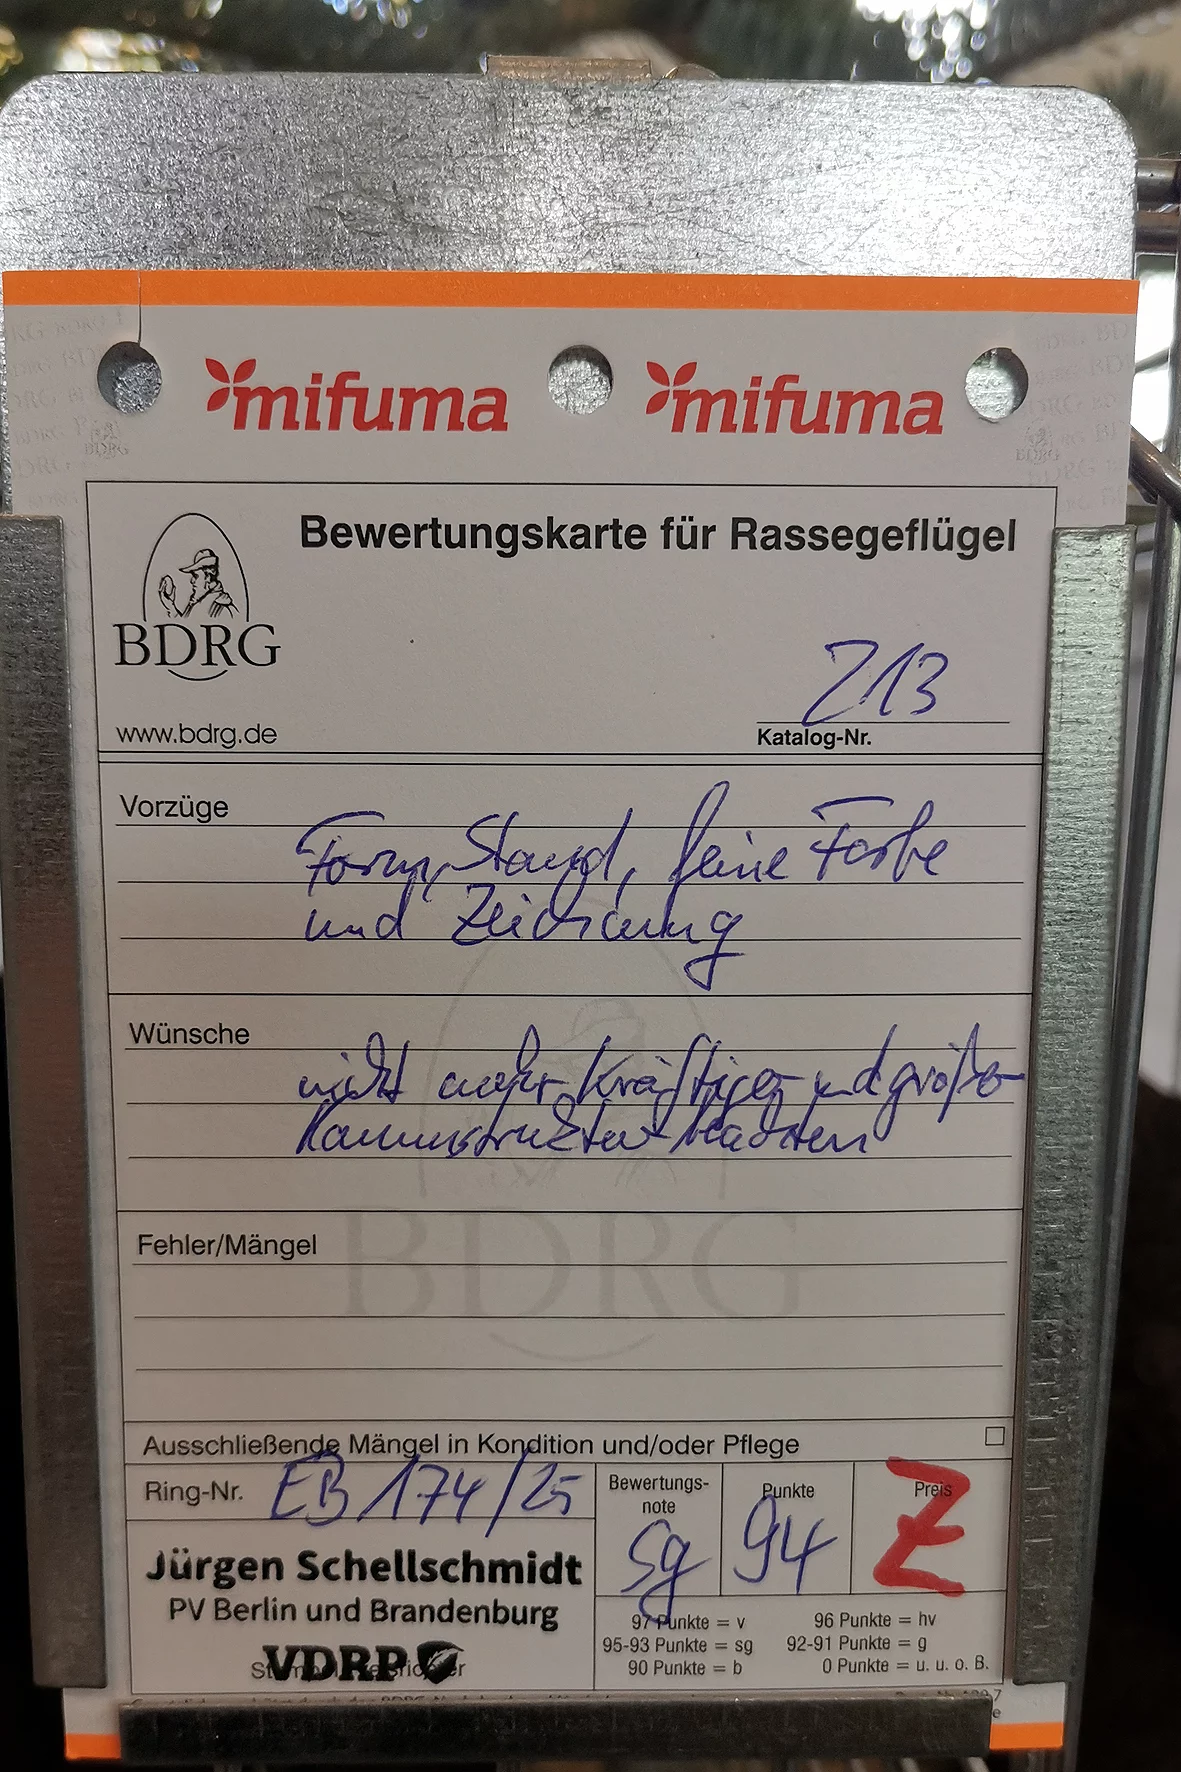 mifuma mifuma
Bewertungskarte für Rassegeflügel
BDRG
www.bdrg.de
213
Katalog-Nr.
Vorzüge
Form, Stand, feine Farbe
und Zeichnung
Wünsche
nicht mehr kräftiger und größer
Kammstruktur beachten
Fehler/Mängel
BDRG
Ausschließende Mängel in Kondition und/oder Pflege
Ring-Nr. EB 174/25
Bewertungs-
note
sg
Punkte
94
Preis
Z
Jürgen Schellschmidt
PV Berlin und Brandenburg
VDRP
97 Punkte = v 96 Punkte = hv
95-93 Punkte = sg 92-91 Punkte = g
90 Punkte = b 0 Punkte = u. u. o. B.